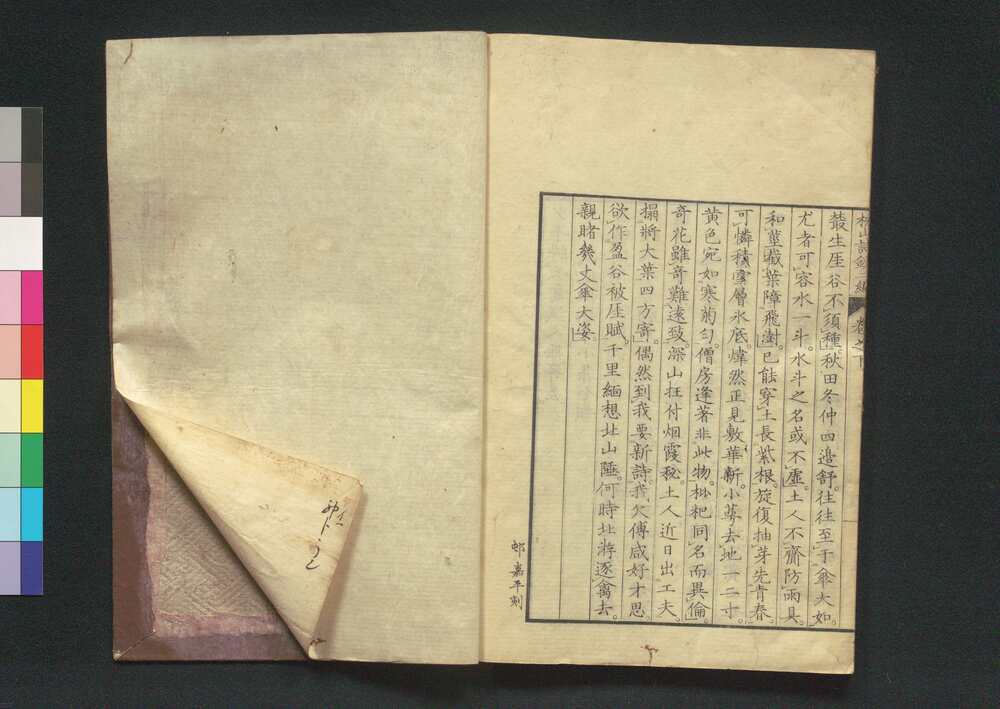 叢生厓谷不須種。秋田冬仲四邊舒。往往至于傘大如。
尤者可容水一斗。水斗之名或不虛。土人不齎防雨具。
和莖戴葉障飛澍。已能穿土長紫根。旋復抽芽先青春。
可憐積雪層氷底。煒然正見敷華新。小蕚去地一二寸。
黃色宛如寒菊勻。僧房逢著非此物。枇杷同名而異倫。
奇花雖奇難遠致。深山抂付烟霞秘。土人近日出工夫。
搨將大葉四方寄。偶然到我要新詩。我欠傅咸好才思。
欲作盈谷被厓賦。千里緬想北山陲。何時北游逐禽去。
親睹幾丈傘大姿。
卷之下
邨嘉平刻